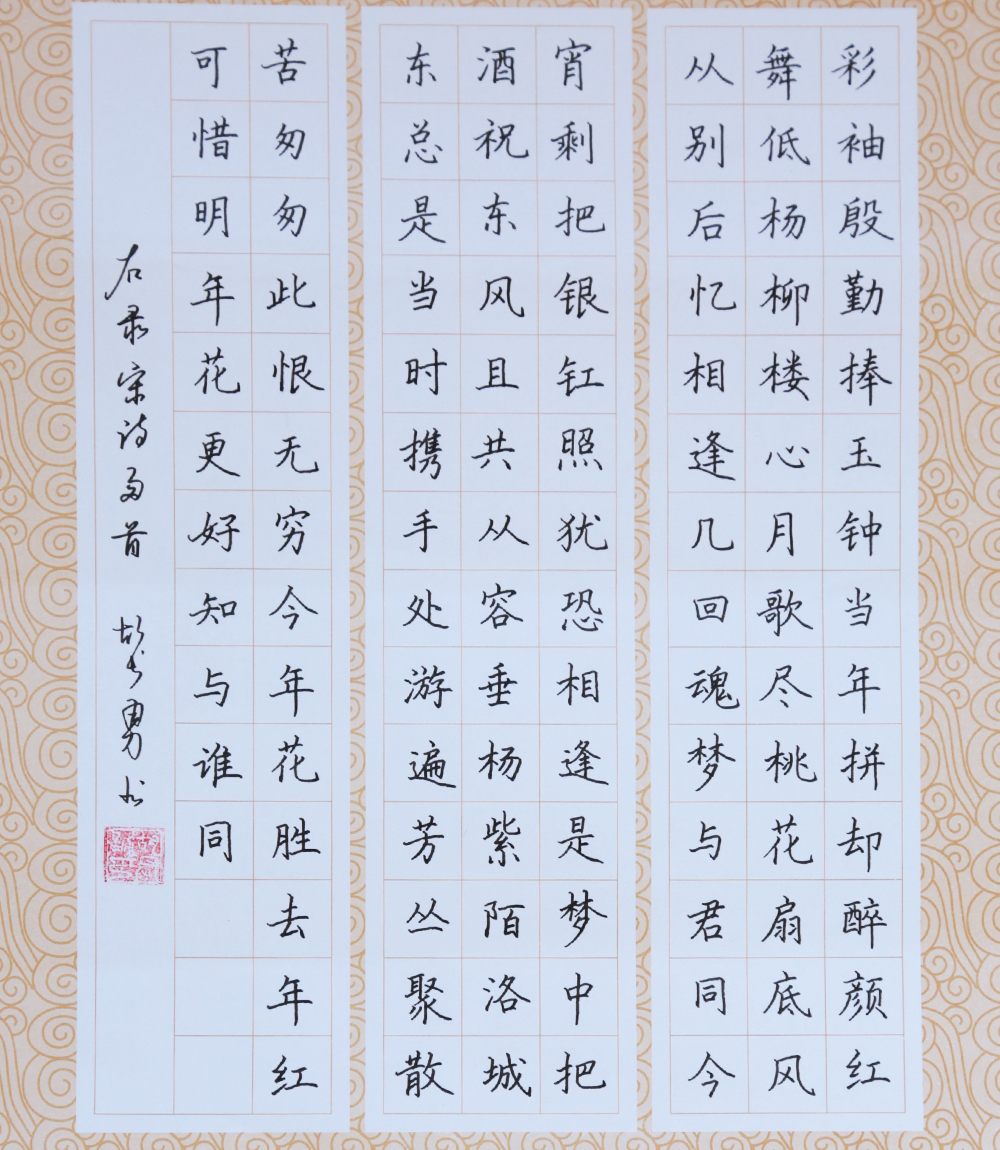 彩袖殷勤捧玉钟当年拼却醉颜红
舞低杨柳楼心月歌尽桃花扇底风
从别后忆相逢几回魂梦与君同今
宵剩把银钲照犹恐相逢是梦中把
酒祝东风且共从容垂杨紫陌洛城
东总是当时携手处游遍芳丛聚散
苦匆匆此恨无穷今年花胜去年红
可惜明年花更好知与谁同
右录宋诗两首 勇书